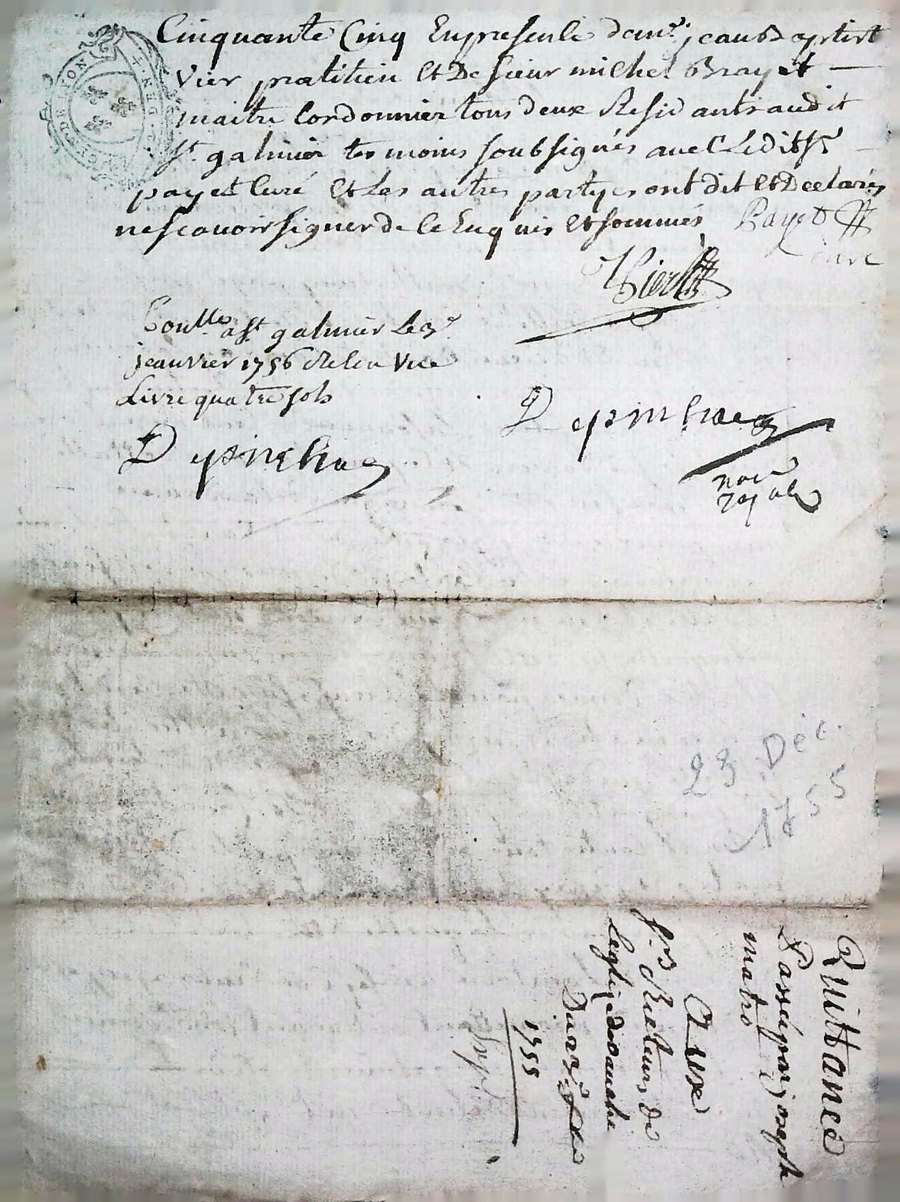 Cinquante Cinq En presence de m.e jean Baptist
Vier pratitien Et De sieur michel Brayet
maitre Cordonnier tous deux Residants audit
St. galmier temoins soubsignés avec Ledit Sr
payet Curé Et Les autres partyes ont dit Et Declarés
ne scavoir signer de ce Enquis Et sommés Payet
Curé
Vier
Conllé a St galmier Le 3e
janvier 1756 Recu Une
Livre quatre sols
Depinhac
Depinhac
nore
Royal
23 Déc.
1755
Quittance
Passée par joseph
matro
Aux
Srs Recteurs de
Leglize de
1755
Sept.